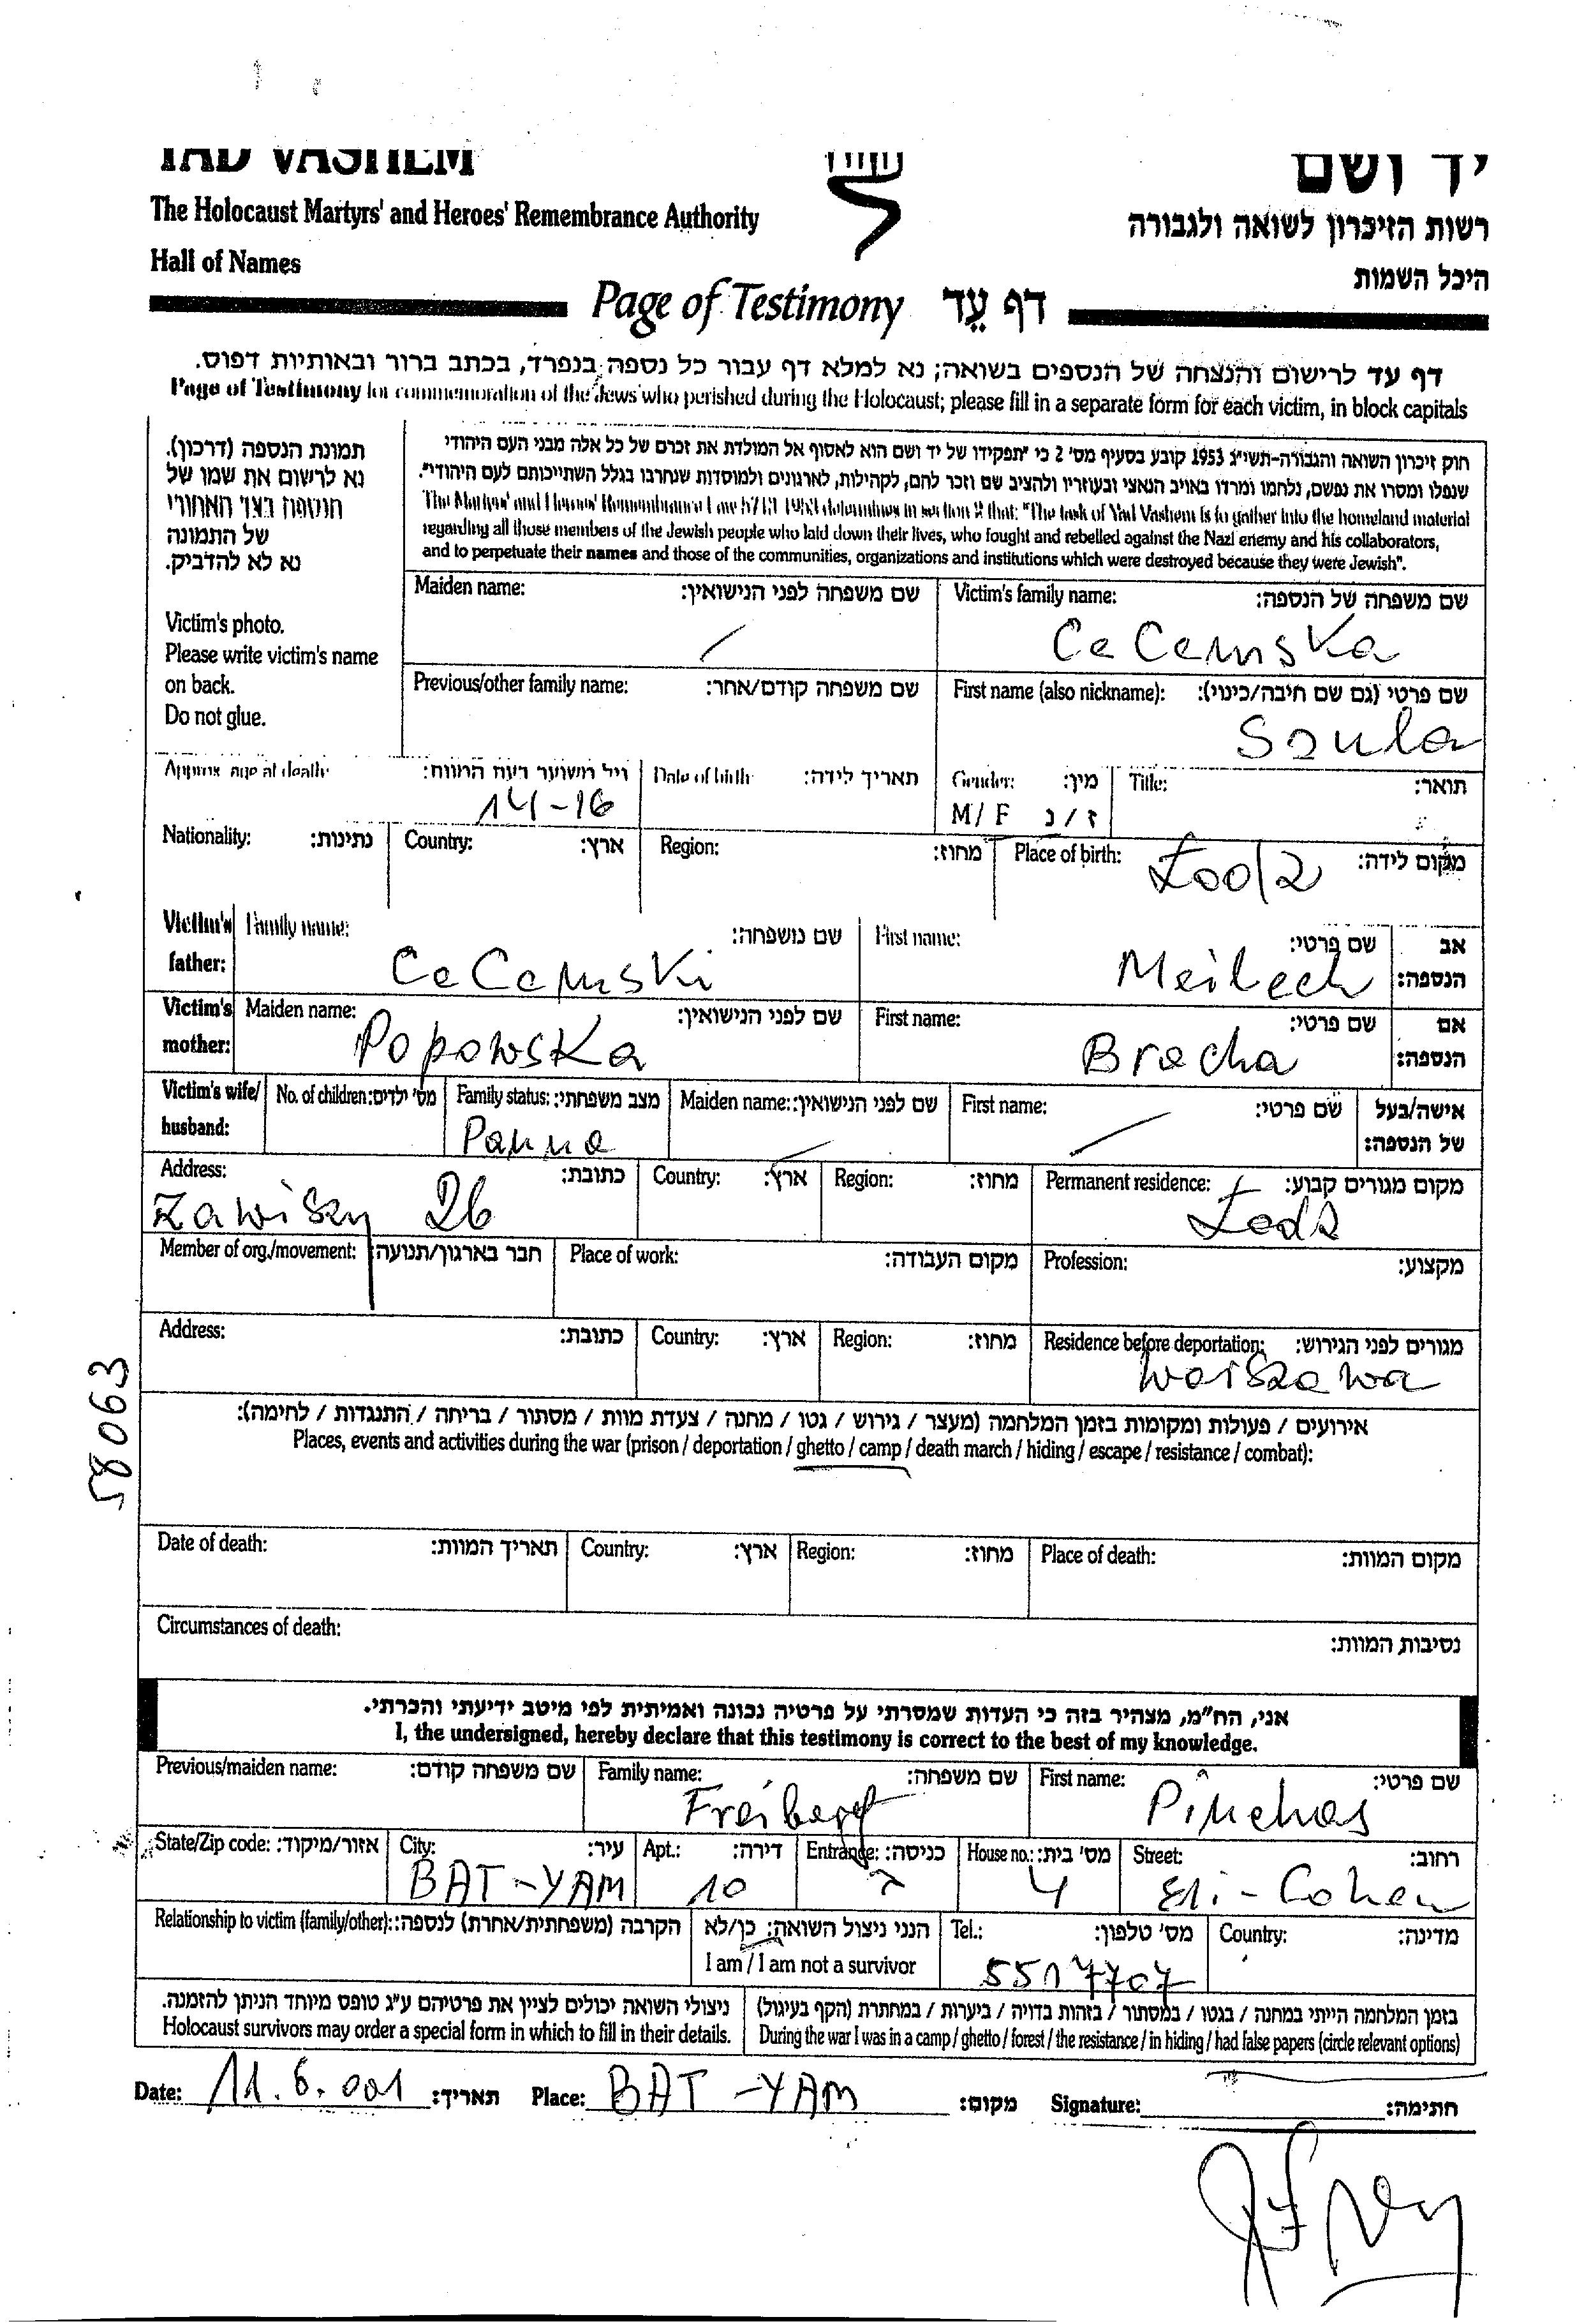 YAD VASHEM
יד ושם
The Holocaust Martyrs' and Heroes' Remembrance Authority
רשות הזיכרון לשואה ולגבורה
Hall of Names
היכל השמות
Page of Testimony דף עֵד
דף עד לרישום והנצחה של הנספים בשואה; נא למלא דף עבור כל נספה בנפרד, בכתב ברור ובאותיות דפוס.
Page of Testimony for commemoration of the Jews who perished during the Holocaust; please fill in a separate form for each victim, in block capitals
תמונת הנספה (דרכון).
נא לרשום את שמו של
הנספה בצד האחורי
של התמונה
נא לא להדביק.
Victim's photo.
Please write victim's name
on back.
Do not glue.
חוק זיכרון השואה והגבורה-תשי"ג 1953 קובע בסעיף מס' 2 כי "תפקידו של יד ושם הוא לאסוף אל המולדת את זכרם של כל אלה מבני העם היהודי
שנפלו ומסרו את נפשם, נלחמו ומרדו באויב הנאצי ובעוזריו ולהציב שם וזכר להם, לקהילות, לארגונים ולמוסדות שנחרבו בגלל השתייכותם לעם היהודי".
The Martyrs' and Heroes' Remembrance Law 5713-1953 determines in section 2 that: "The task of Yad Vashem is to gather into the homeland material
regarding all those members of the Jewish people who laid down their lives, who fought and rebelled against the Nazi enemy and his collaborators,
and to perpetuate their names and those of the communities, organizations and institutions which were destroyed because they were Jewish".
Maiden name: שם משפחה לפני הנישואין: Victim's family name: שם משפחה של הנספה:
CeCemska
Previous/other family name: שם משפחה קודם/אחר: First name (also nickname): שם פרטי (גם שם חיבה/כינוי):
Szula
Approx. age at death: גיל משוער בעת המוות: Date of birth: תאריך לידה: Gender: מין: Title: תואר:
14-16 M/F ז/נ
Nationality: נתינות: Country: ארץ: Region: מחוז: Place of birth: מקום לידה:
Łodz
Victim's father: Family name: שם משפחה: First name: שם פרטי: אב הנספה:
CeCemski Meilech
Victim's mother: Maiden name: שם לפני הנישואין: First name: שם פרטי: אם הנספה:
Popowska Brecha
Victim's wife/husband: No. of children: מס' ילדים: Family status: מצב משפחתי: Maiden name: שם לפני הנישואין: First name: שם פרטי: אישה/בעל של הנספה:
Panna
Address: כתובת: Country: ארץ: Region: מחוז: Permanent residence: מקום מגורים קבוע:
Zawiszy 26 Łodz
Member of org./movement: חבר בארגון/תנועה: Place of work: מקום העבודה: Profession: מקצוע:
Address: כתובת: Country: ארץ: Region: מחוז: Residence before deportation: מגורים לפני הגירוש:
Warszawa
58063
אירועים / פעולות ומקומות בזמן המלחמה (מעצר / גירוש / גטו / מחנה / צעדת מוות / מסתור / בריחה / התנגדות / לחימה):
Places, events and activities during the war (prison / deportation / ghetto / camp / death march / hiding / escape / resistance / combat):
Date of death: תאריך המוות: Country: ארץ: Region: מחוז: Place of death: מקום המוות:
Circumstances of death: נסיבות המוות:
אני, הח"מ, מצהיר בזה כי העדות שמסרתי על פרטיה נכונה ואמיתית לפי מיטב ידיעתי והכרתי.
I, the undersigned, hereby declare that this testimony is correct to the best of my knowledge.
Previous/maiden name: שם משפחה קודם: Family name: שם משפחה: First name: שם פרטי:
Freiberg Pinchas
State/Zip code: אזור/מיקוד: City: עיר: Apt.: דירה: Entrance: כניסה: House no.: מס' בית: Street: רחוב:
BAT-YAM 10 4 Eli-Cohen
Relationship to victim (family/other): הקרבה (משפחתית/אחרת) לנספה: הנני ניצול השואה: כן/לא Tel.: מס' טלפון: Country: מדינה:
I am / I am not a survivor 5517707
ניצולי השואה יכולים לציין את פרטיהם ע"ג טופס מיוחד הניתן להזמנה. בזמן המלחמה הייתי במחנה / בגטו / במסתור / בזהות בדויה / ביערות / במחתרת (הקף בעיגול)
Holocaust survivors may order a special form in which to fill in their details. During the war I was in a camp / ghetto / forest / the resistance / in hiding / had false papers (circle relevant options)
Date: 11.6.001 תאריך: Place: BAT-YAM מקום: Signature: חתימה: